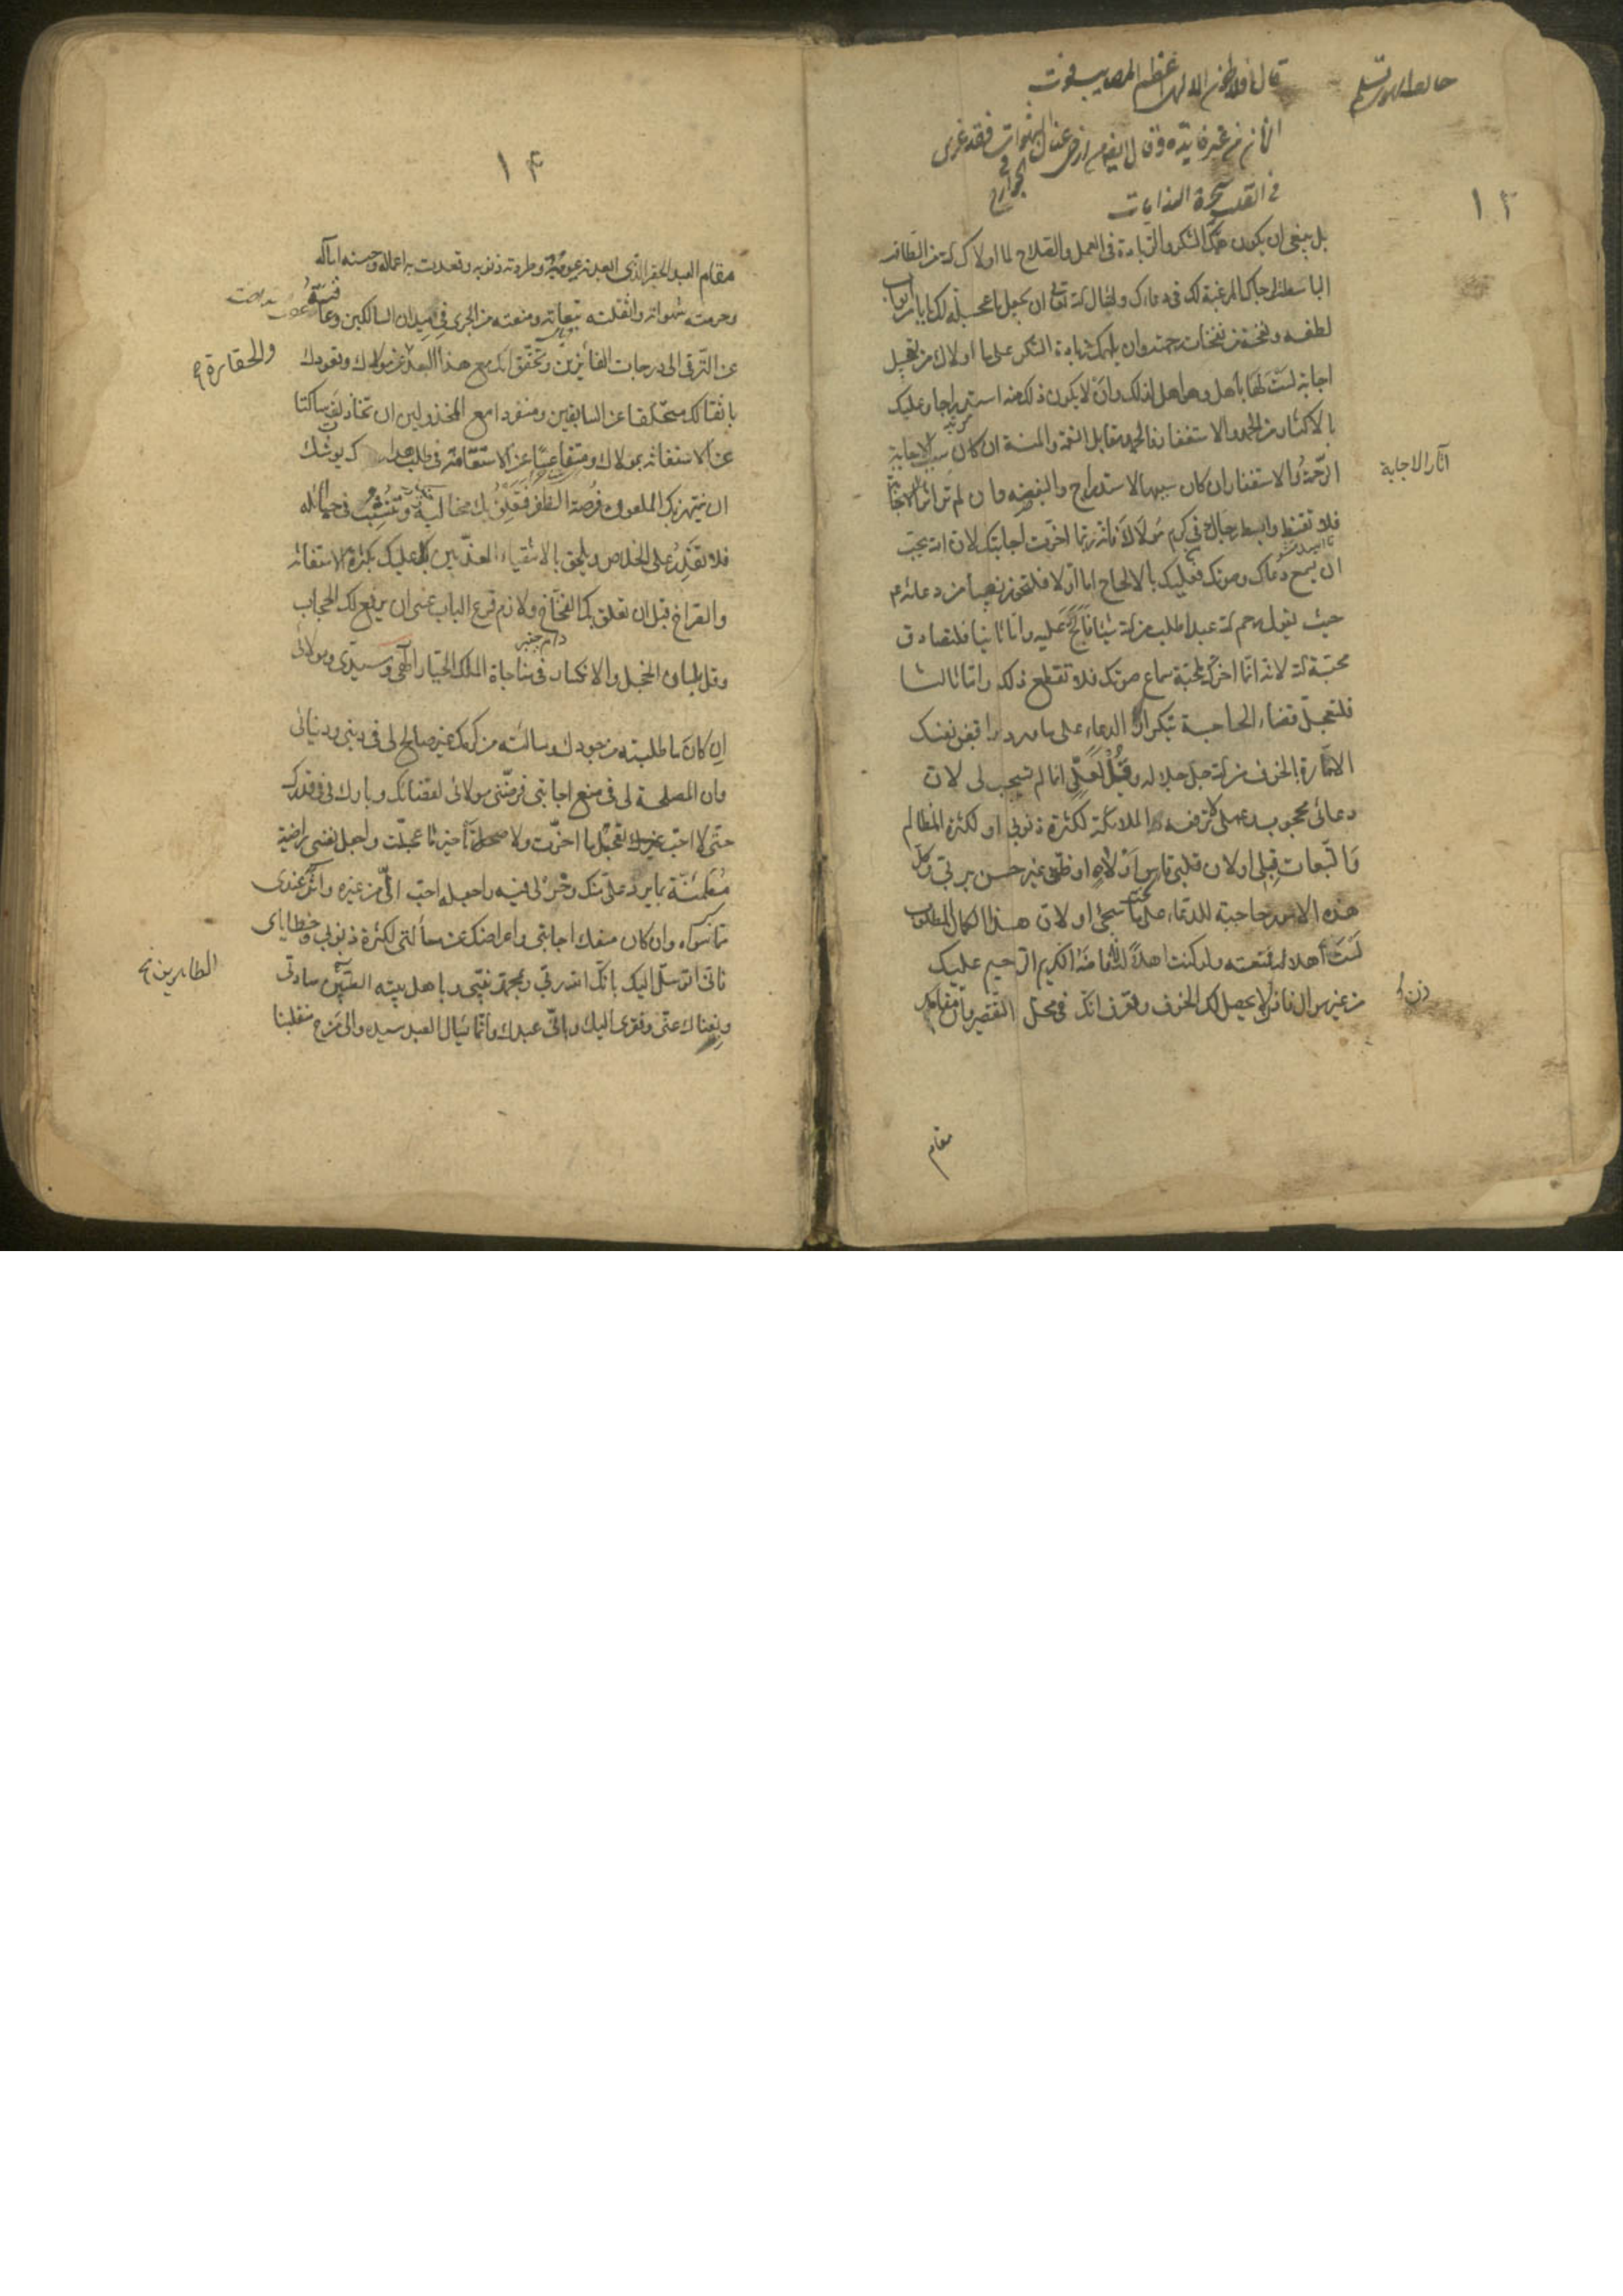 ١٣
قال افلاطون الالهى اعظم المصايب فوت
الزمان من غير فايدة وقال فقد غرى
فى القلب
بل ينبغى ان يكون همك الشكر والزيادة فى العمل والصلاح لما اولاك الله من الطافه
الباسطة لرجاك المرغبة لك فى دعاك واسال الله تعالى ان يجعل ما عجله لك بابا من ابواب
لطفه ونفحة من نفحات رحمته وان يلهمك زيادة الشكر على ما اولاك من تعجيل
اجابة لست لها بأهل وهو اهل لذلك وان لا يكون ذلك منه استدراجا وعليك
بالاكثار من الحمد والاستغفار فالحمد مقابل النعمة والمنة ان كان سبب الاجابة
الرحمة والاستغفار ان كان سببها الاستدراج والبغض وان لم تر اثار الاجابة
آثار الاجابة
فلا تقنط وابسط رجاك فى كرم مولاك فانه ربما اخرت اجابتك لان الله يحب
ان يسمع دعاك وصوتك فعليك بالالحاح اما اولا فلتحوز نصيبا من دعائه ع
حيث يقول رحم الله عبدا طلب من الله شيئا فالح عليه واما ثانيا فلتصادق
محبة الله لانه انما اخرك لمحبة سماع صوتك فلا تقطع ذلك واما ثالثا
فلتعجل قضاء الحاجة بتكرار الدعاء على ما ورد واقبض نفسك
الامارة بالخوف من الله جل جلاله وقل لعلى انما لم يستجب لى لان
دعائى محجوب وعملى لا ترفعه الملائكة لكثرة ذنوبى او لكثرة المظالم
والتبعات قبلى او لان قلبى قاس او لاه او ظنى غير حسن بربى وكل
هذه الامور حاجبة للدعاء على ما سيجئ او لان هذا الكمال المطلوب
لست أهلا له فمنعته ولو كنت اهلا له لافاضه الكريم الرحيم عليك
من غير سؤال فاذن لا يحصل لك الخوف وتعرف انك فى محل التقصير وان مقامك
مقام
١٤
مقام العبد الحقير الذى ابعدته عيوبه وطردته ذنوبه وقعدت به اعماله وحبسته اماله
وحرمته شهواته واثقلته تبعاته ومنعته من الجرى فى ميدان السالكين وعاقته
عن الترقى الى درجات الفائزين وتحقق انك مع هذا البعد عن مولاك وقعودك
والحقارة
باثقالك متخلفا عن السابقين ومنفردا مع المخذولين ان تخاذلت ساكتا
عن الاستغاثة بمولاك ومتقاعسا عن الاستقامة فى طلب يوشك
ان ينتهز بك الملعون فرصة الظفر فتعلق بك مخالبه وتنشب فى حبائله
فلا تقدر على الخلاص ويلحق بالاشقياء المعذبين بل عليك بكثرة الاستغاثة
والصراخ قبل ان تعلق بك الفخاخ ولازم قرع الباب عسى ان يرفع لك الحجاب
وقل بلسان الخجل والانكسار فى مناجاة الملك الجبار الهى وسيدى ومولائى
ان كان ما طلبته من جودك وسالته من كرمك غير صالح لى فى دينى ودنيائى
وان المصلحة لى فى منع اجابتى فرضنى مولائى لقضائك وبارك لى فى قدرك
حتى لا احب تعجيل ما اخرت ولا تأخير ما عجلت واجعل نفسى راضية
مطمئنة بما يرد على منك وخر لى فيه واجعله احب الى من غيره واثر عندى
مما سواه وان كان منعك اجابتى واعراضك عن مسألتى لكثرة ذنوبى وخطاياى
فانى اتوسل اليك بانك انت ربى وبمحمد نبيى وباهل بيته الطيبين سادتى
الطاهرين
وبغناك عنى وفقرى اليك وبانى عبدك وانما يسأل العبد سيده والى من ح منقلبنا